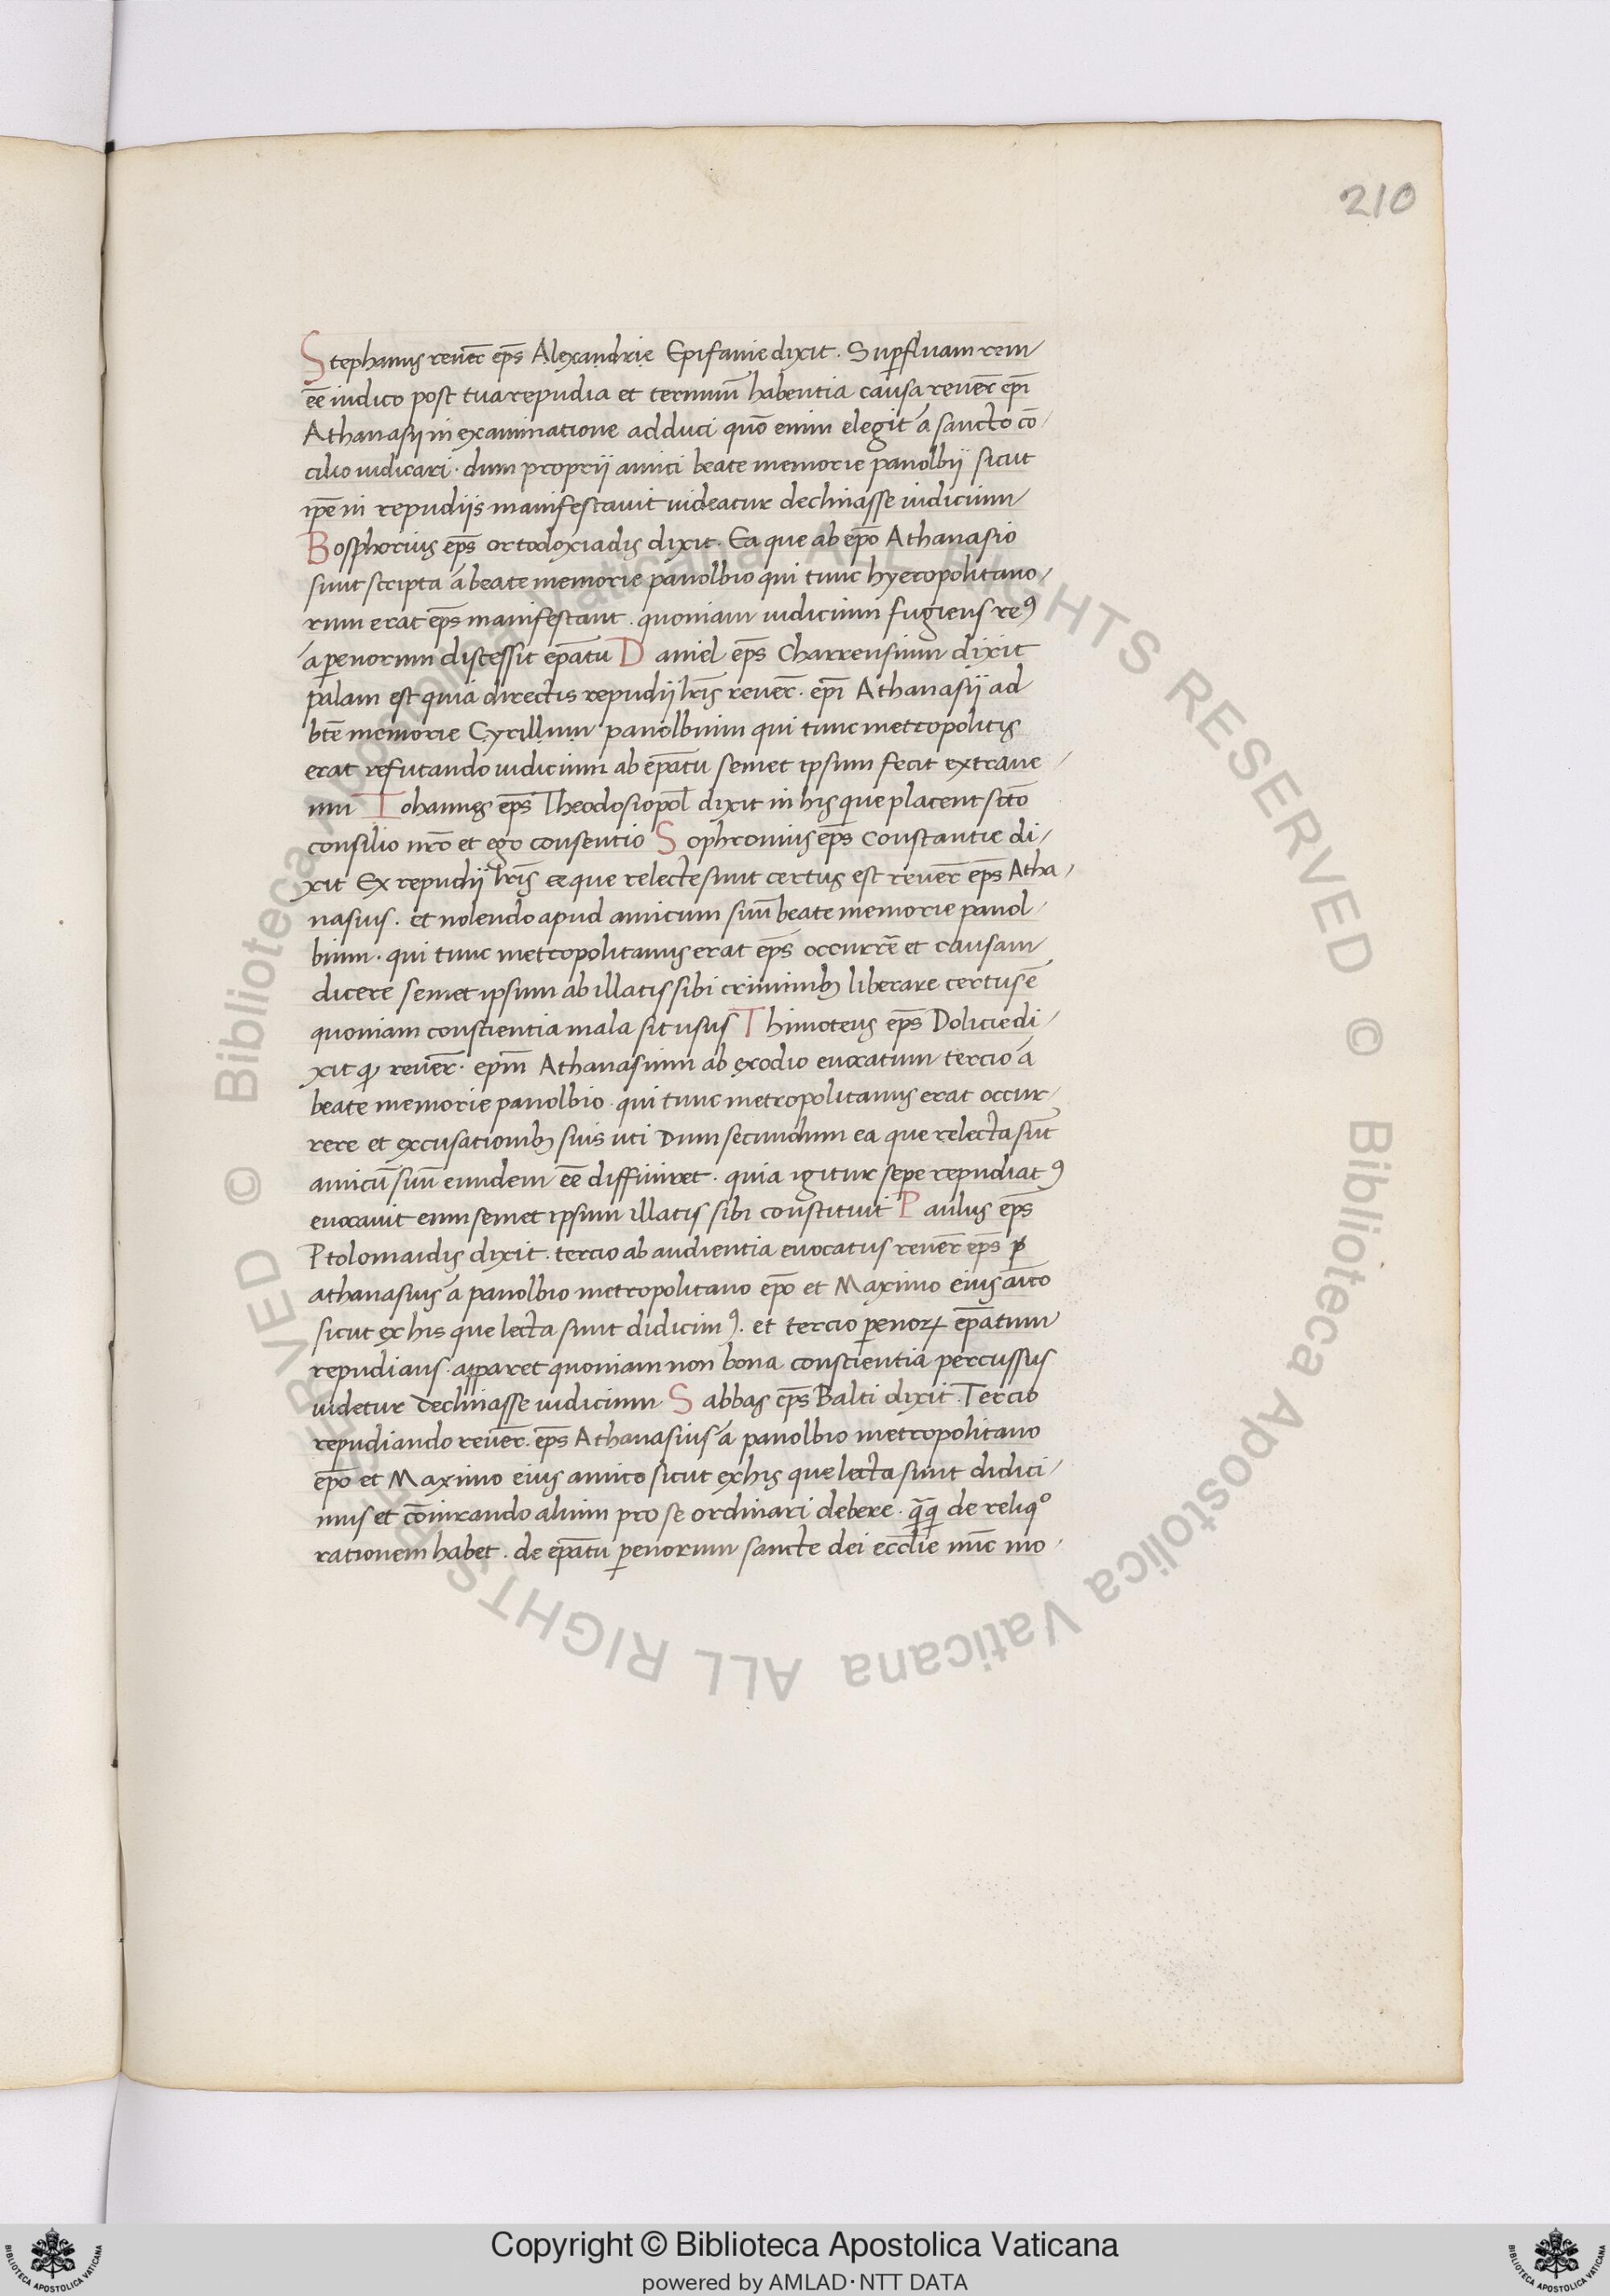 210
Stephanus reuer̄ ep̄s Alexandrie Epifanie dixit. Suꝑfluam rem
eē iudico post tua repudia et terminū habentia causa reuer̄ ep̄i
Athanasij in examinatione adduci quō enim elegit á sancto cō
cilio iudicari. dum proprij amici beate memorie panolbij sicut
ip̄e in repudijs manifestauit uideatur declinasse iudicium
Bosphorius ep̄s ortodoxiadis dixit. Ea que ab ep̄o Athanasio
sunt scripta á beate memorie panolbio qui tunc hyeropolitano
rum erat ep̄s manifestant. quoniam iudicium fugiens reꝰ
á perenorum discessit ep̄atu Daniel ep̄s Charrensium dixit
palam est quia directis repudij lr̄is reuer̄. ep̄i Athanasij ad
btē memorie Cyrillum panolbium qui tunc metropolitis
erat refutando iudicium ab ep̄atu semet ipsum fecit extrane
um Iohannes ep̄s Theodosiopol̄ dixit in his que placent sc̄to
consilio nr̄o et ego consentio Sophronius ep̄s Constantie di
xit Ex repudij lr̄is ee que relecte sunt certus est reuer̄ ep̄s Atha
nasius. et nolendo apud amicum suū beate memorie panol
bium. qui tunc metropolitanus erat ep̄s occurrē et causam
dicere semet ipsum ab illatis sibi criminibꝫ liberare certus ē
quoniam conscientia mala sit usus Thimoteus ep̄s Dolicie di
xit ꝙ reuer̄. ep̄m Athanasium ab exodio euocatum tercio á
beate memorie panolbio qui tunc metropolitanus erat occur
rere et excusationibꝫ suis uti Dum secundum ea que relecta sūt
amicū suū eundem eē diffiniret. quia igitur sepe repudiatꝰ
euocauit eum semet ipsum illatis sibi constituit Paulus ep̄s
Ptolomaidis dixit. tercio ab audientia euocatus reuer̄ ep̄s
athanasius á panolbio metropolitano ep̄o et Maximo eius aīco
sicut ex his que lecta sunt didicimꝰ. et tercio ꝑenoꝝ ep̄atum
repudians. apparet quoniam non bona conscientia percussus
uidetur declinasse iudicium Sabbas ep̄s Balti dixit. Tercio
repudiando reuer̄. ep̄s Athanasius á panolbio metropolitano
ep̄o et Maximo eius amico sicut ex his que lecta sunt didici
mus et cōiurando alium pro se ordinari debere. q̄q̄ de reliqº
rationem habet. de ep̄atu ꝑenorum sancte dei ecc̄lie nūc mo
© Biblioteca Apostolica Vaticana ALL RIGHTS RESERVED © Biblioteca Apostolica Vaticana ALL RIGHTS RESERVED
Copyright © Biblioteca Apostolica Vaticana
powered by AMLAD·NTT DATA
BIBLIOTECA APOSTOLICA VATICANA
BIBLIOTECA APOSTOLICA VATICANA